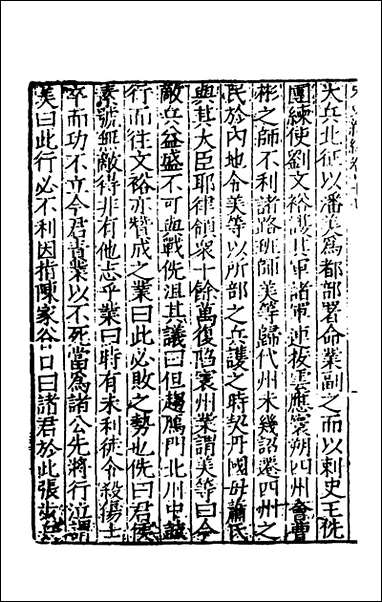 大兵北征以潘美爲都部署命業副之而以刺史王侁
團練使劉文裕護其軍諸軍連抜雲應寰朔四州會曹
彬之師不利諸路班師美等歸代州未幾詔遷四州之
民於内地令美等以所部之兵護之時契丹國母蕭氏
與其大臣耶律領衆十餘萬復陷寰州業謂美等曰今
敵兵益盛不可與戰侁沮其議曰但趨鴈門北川中鼓
行而往文裕亦贊成之業曰此必敗之勢也侁曰君侯
素號無敵得非有他志乎業曰時有未利徒令殺傷士
卒而功不立今君責業以不死當爲諸公先將行泣謂
美曰此行必不利因指陳家谷口曰諸君於此張步